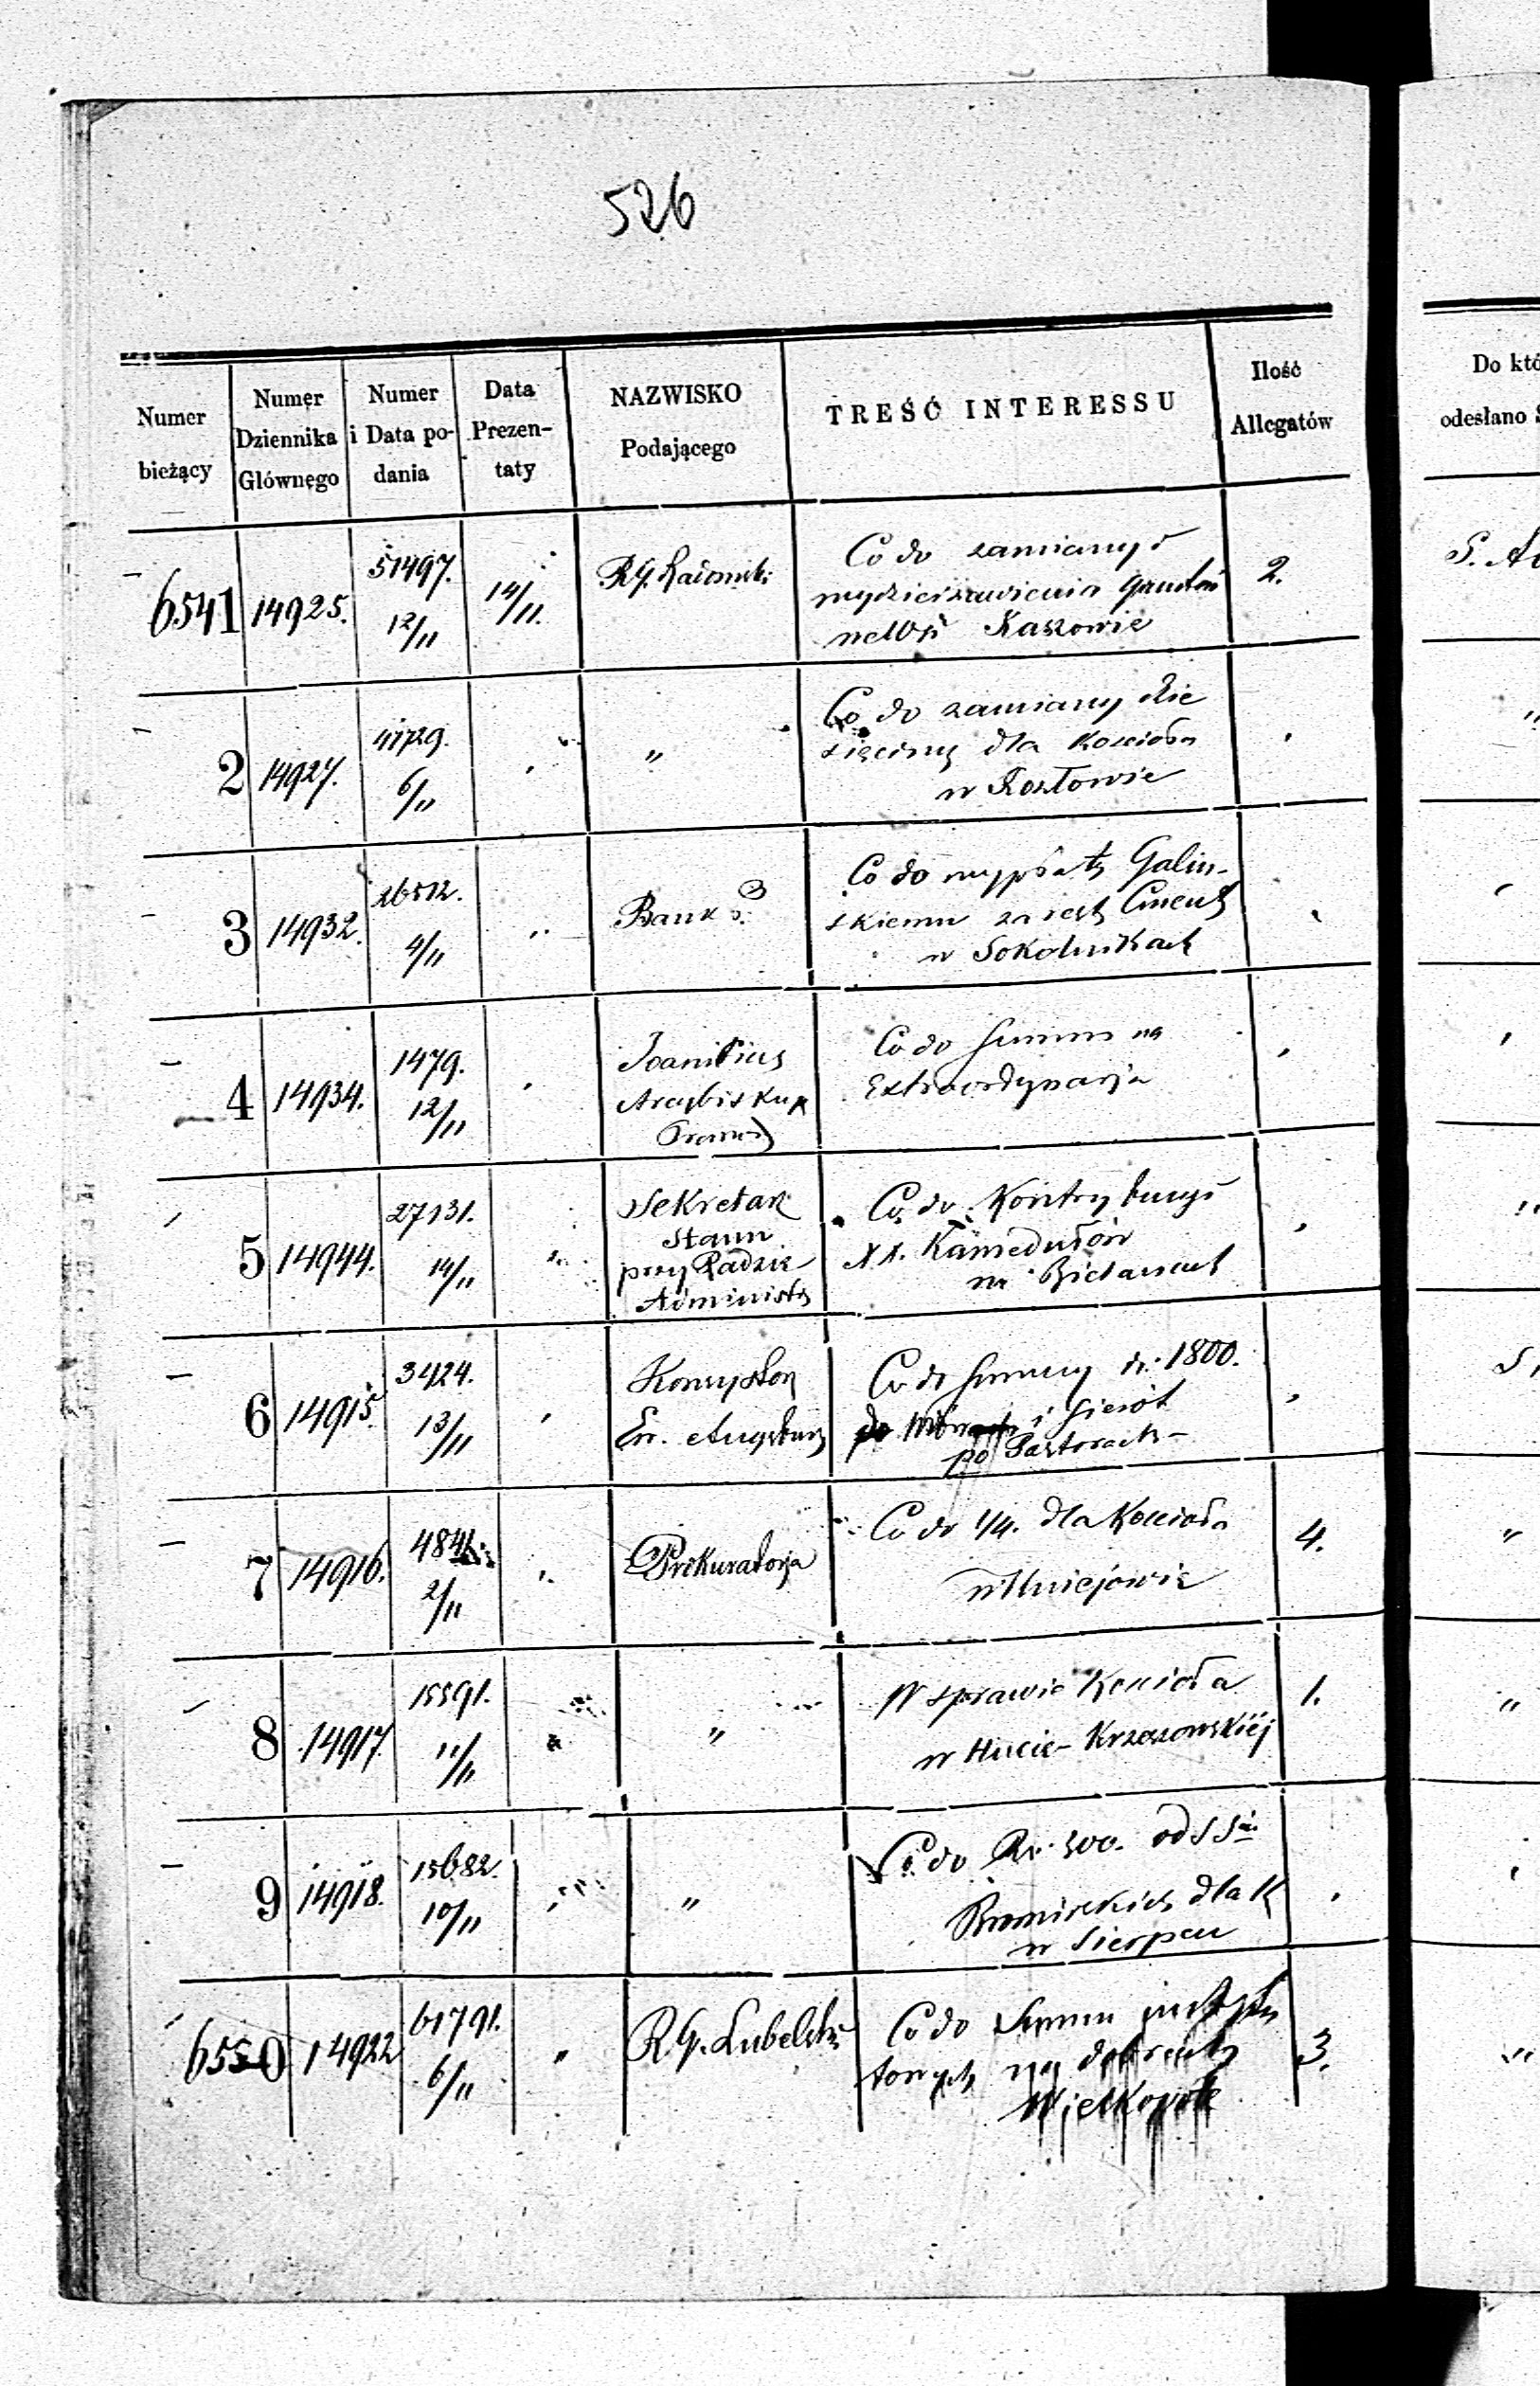 526
Numer bieżący | Numer Dziennika Głównego | Numer i Data podania | Data Prezentaty | NAZWISKO Podającego | TREŚĆ INTERESSU | Ilość Allegatów | Do któ
odesłano S
6541 14925. 51497. 12/11 14/11. R.G. Radomsk: Co do zamiany i
wydzierżawienia gruntów
we Wsi Kaszowie 2.
2 14927. 41729. 6/11 " Co do zamiany dzie
sięciny dla Kościoła
w Kozłowie
3 14932. 26512. 4/11 Bank P. Co do wypłaty Galiń-
skiemu za rest Cment
w Sokolnikach
4 14934. 1479. 12/11 Joanikius
Arcybiskup
Co do Summ na
Extraordynarja
5 14944. 27131. 14/11 Sekretarz
Stanu
przy Radzie
Administr
Co do Kontrybucyi
XX. Kamedułów
na Bielanach
6 14915. 3424. 13/11 Konsystorz
Ew. Augsburg
Co do Summy zł. 1800.
do Wdowach i Sierót
po Pastorach
7 14916. 4841 2/11 Prokuratorja Co do 1/4. dla Kościoła
w Uniejowie 4.
8 14917. 15591. 11/11 " W sprawie Kościoła
w Hucie Krzeszowskiéj 1.
9 14918. 15682. 10/11 " Co do Rs. 300. od SSów
Bromirskich dla K
w Sierpcu
6550 14922 61791. 6/11 " R.G. Lubelski Co do Summ
na dobrach
Wielkopole 3.